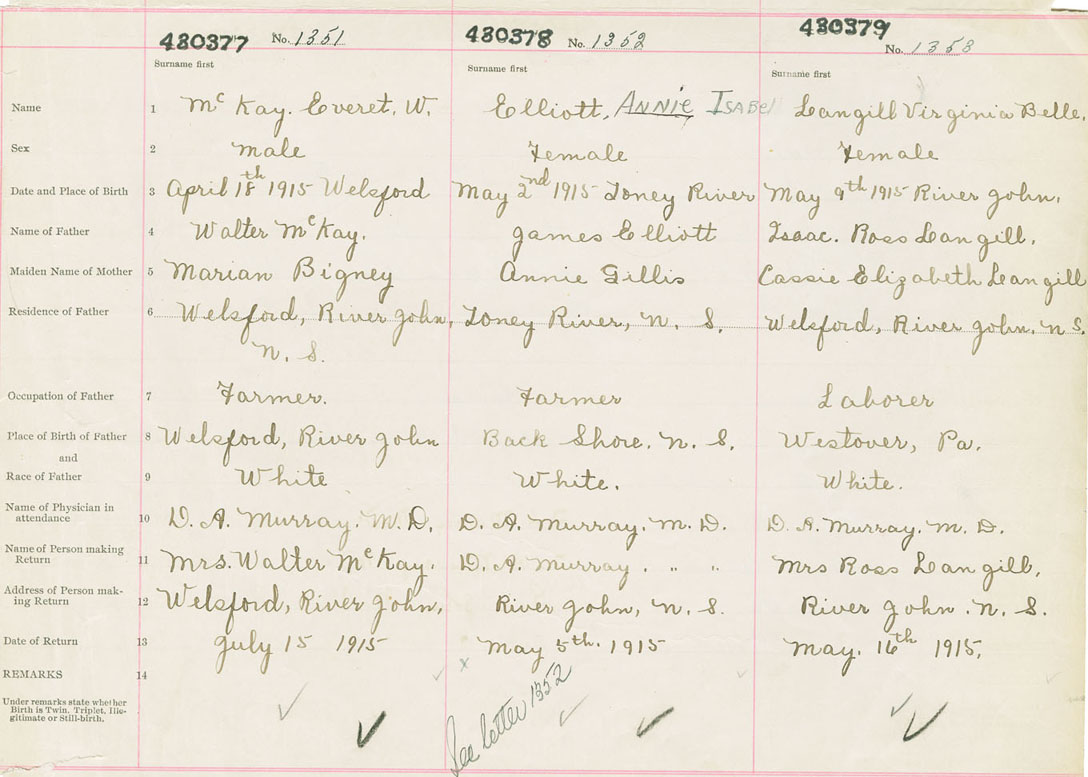 480377 No. 1351 480378 No. 1352 480379 No. 1353
Surname first Surname first Surname first
Name 1 Mc Kay. Everet. W. Elliott, Annie Isabel Langill Virginia Belle,
Sex 2 Male Female Female
Date and Place of Birth 3 April 18th 1915 Welsford May 2nd 1915 Toney River May 9th 1915 River John,
Name of Father 4 Walter McKay. James Elliott Isaac. Ross Langill,
Maiden Name of Mother 5 Marian Bigney Annie Gillis Cassie Elizabeth Langill
Residence of Father 6 Welsford, River John, Toney River, N. S. Welsford, River John. N S.
N. S.
Occupation of Father 7 Farmer. Farmer Laborer
Place of Birth of Father 8 Welsford, River John Back Shore. N. S. Westover, Pa.
and
Race of Father 9 White White. White.
Name of Physician in
attendance 10 D. A. Murray. M. D. D. A. Murray. M. D. D. A. Murray. M. D.
Name of Person making
Return 11 Mrs. Walter McKay. D. A. Murray. " " Mrs Ross Langill,
Address of Person mak-
ing Return 12 Welsford, River John, River John, N. S. River John. N. S.
Date of Return 13 July 15 1915 May 5th. 1915 May. 16th 1915.
REMARKS 14 x
Under remarks state whether
Birth is Twin. Triplet. Ille-
gitimate or Still-birth.
See letter 1352